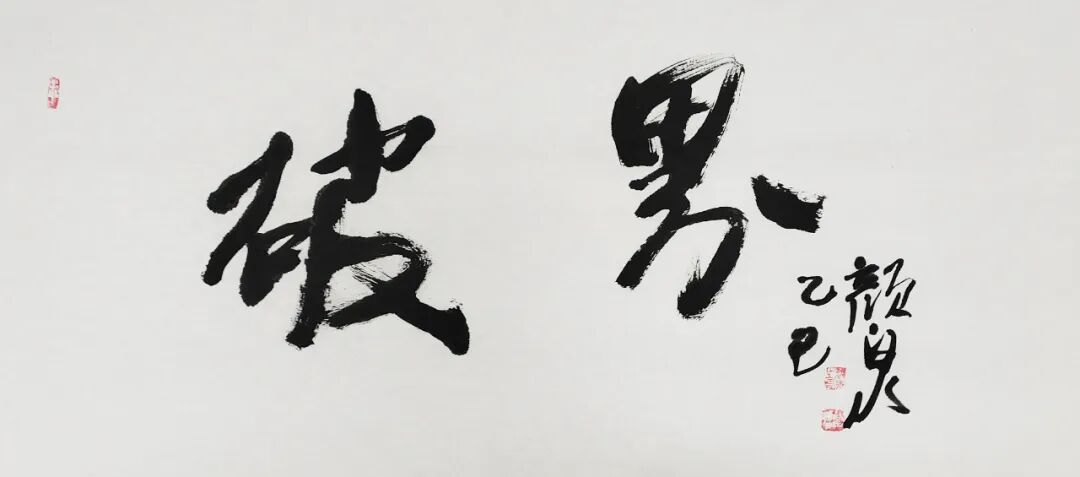 破界
乙巳
颜泉